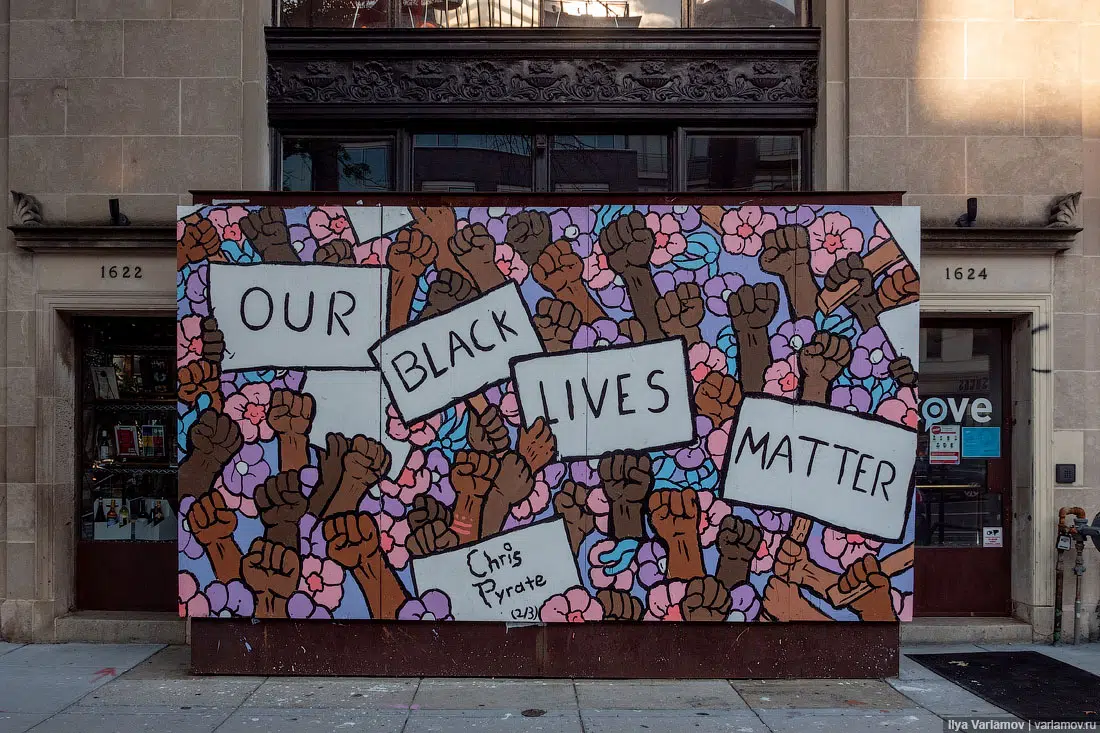 1622
1624
OUR
BLACK
LIVES
MATTER
ove
Chris
Pyrate
(2/3)
Ilya Varlamov | varlamov.ru